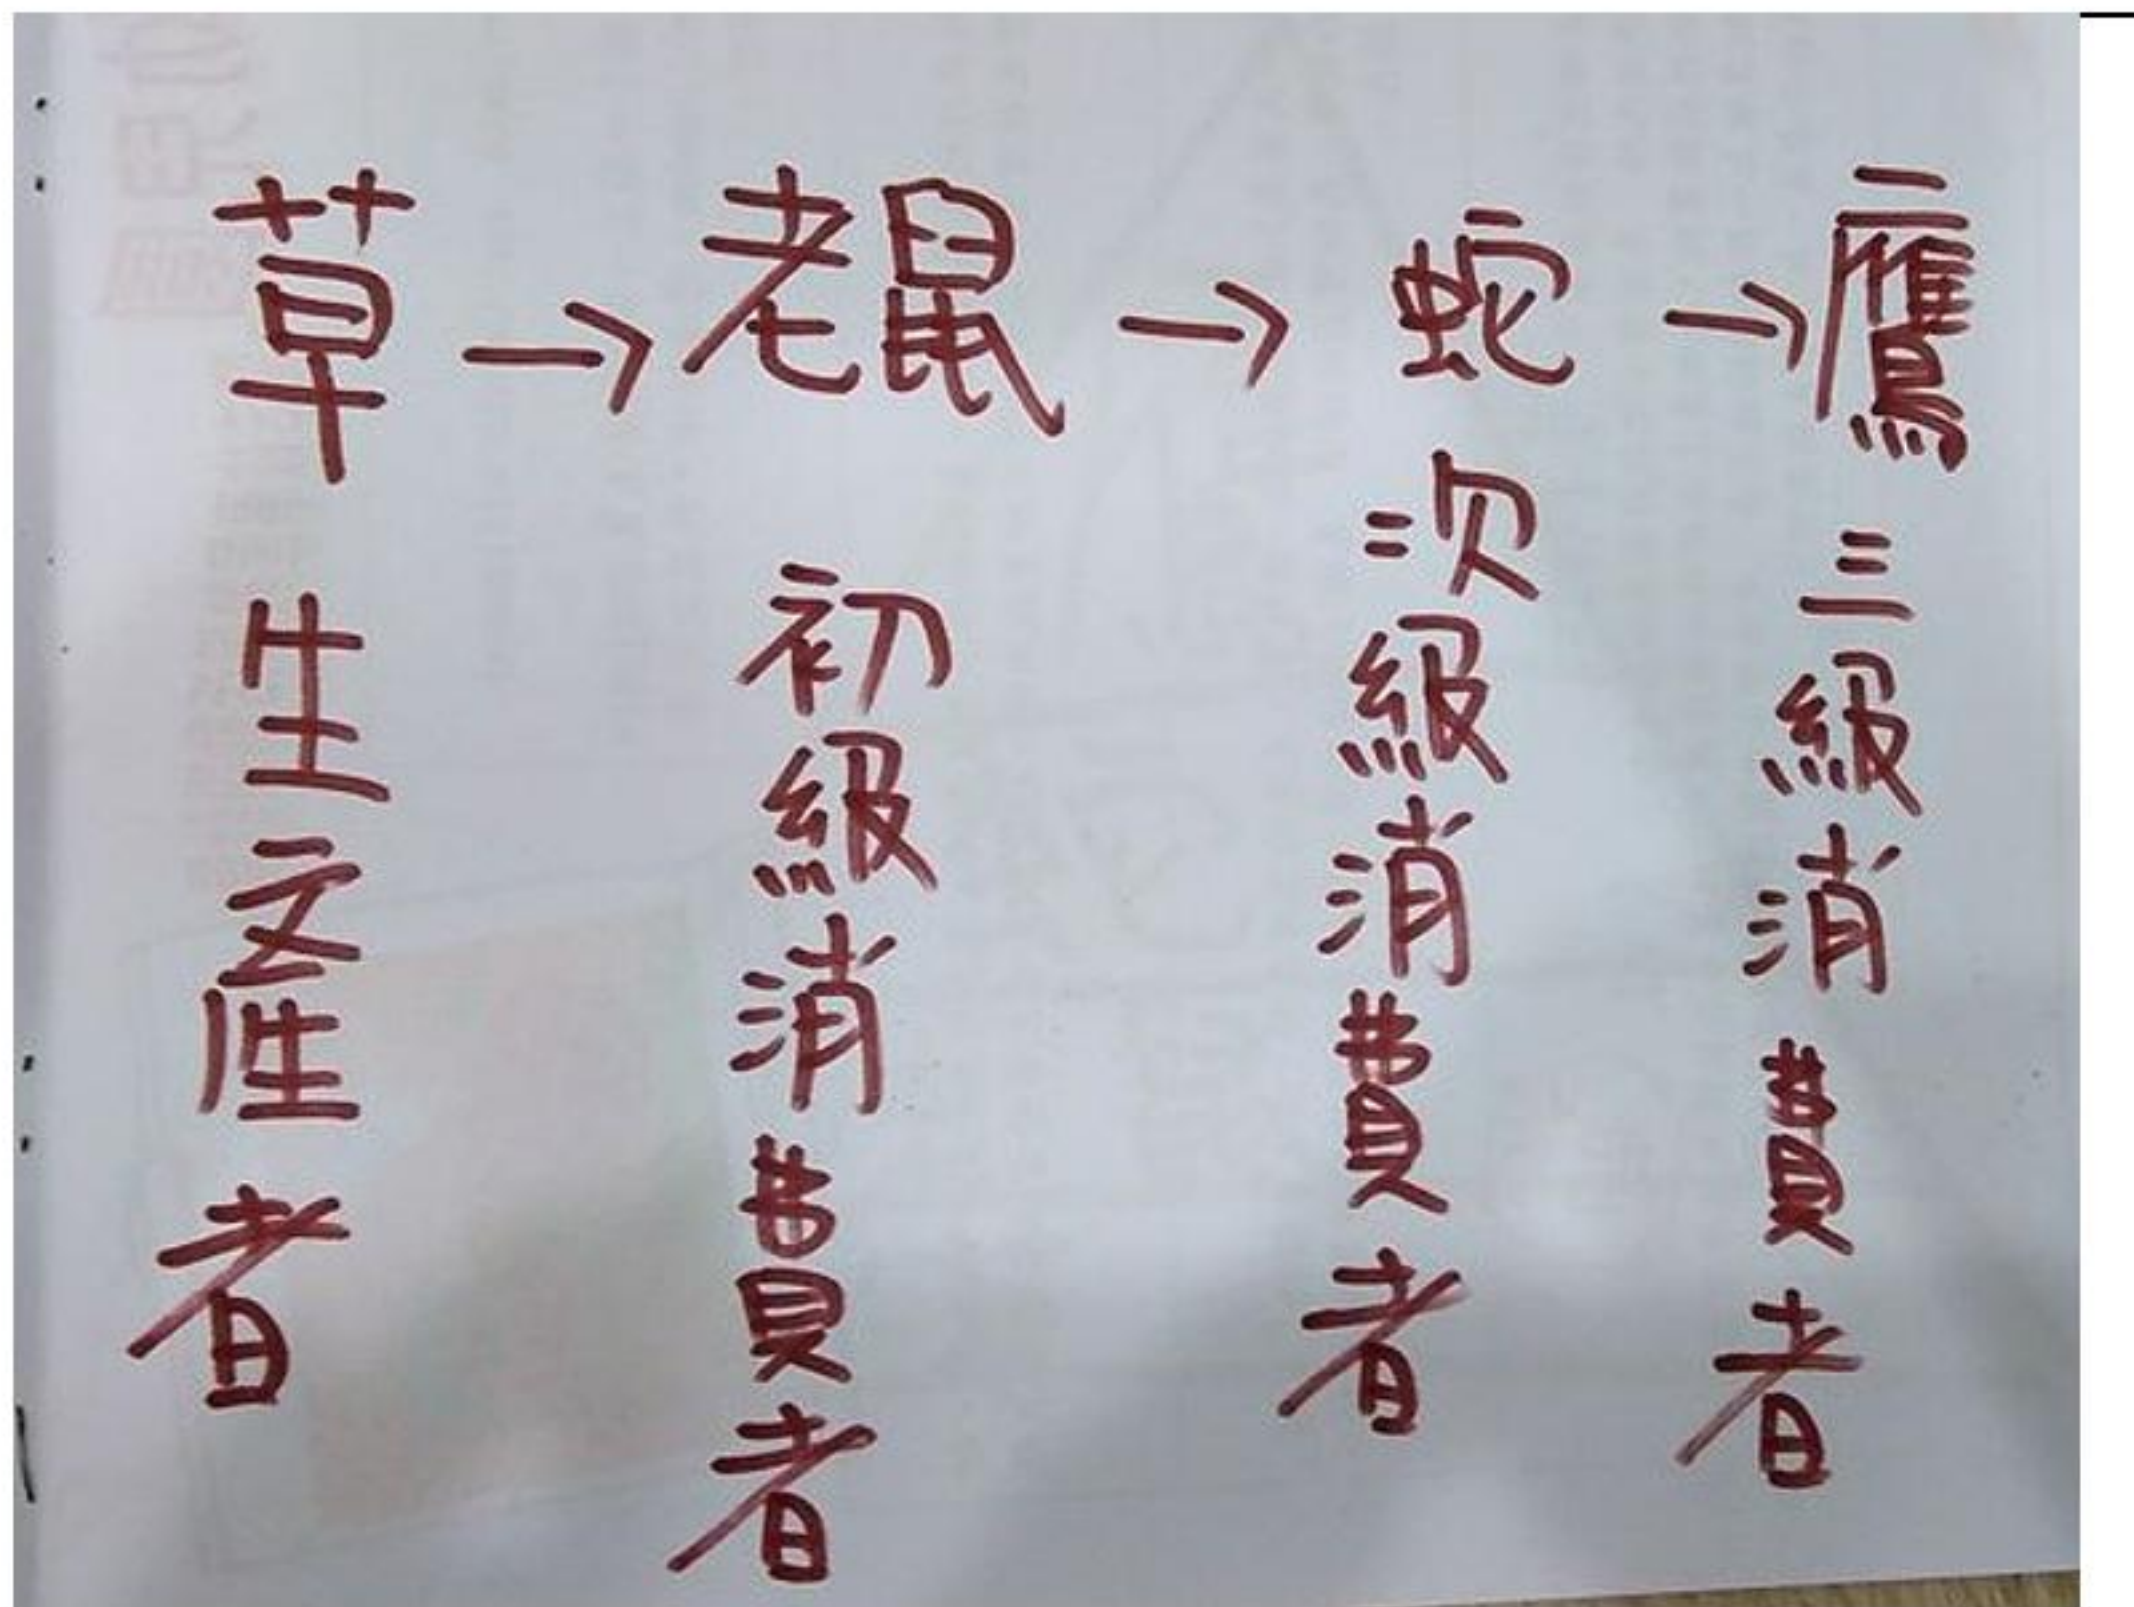 草→老鼠→蛇→鷹
生產者
初級消費者
次級消費者
三級消費者